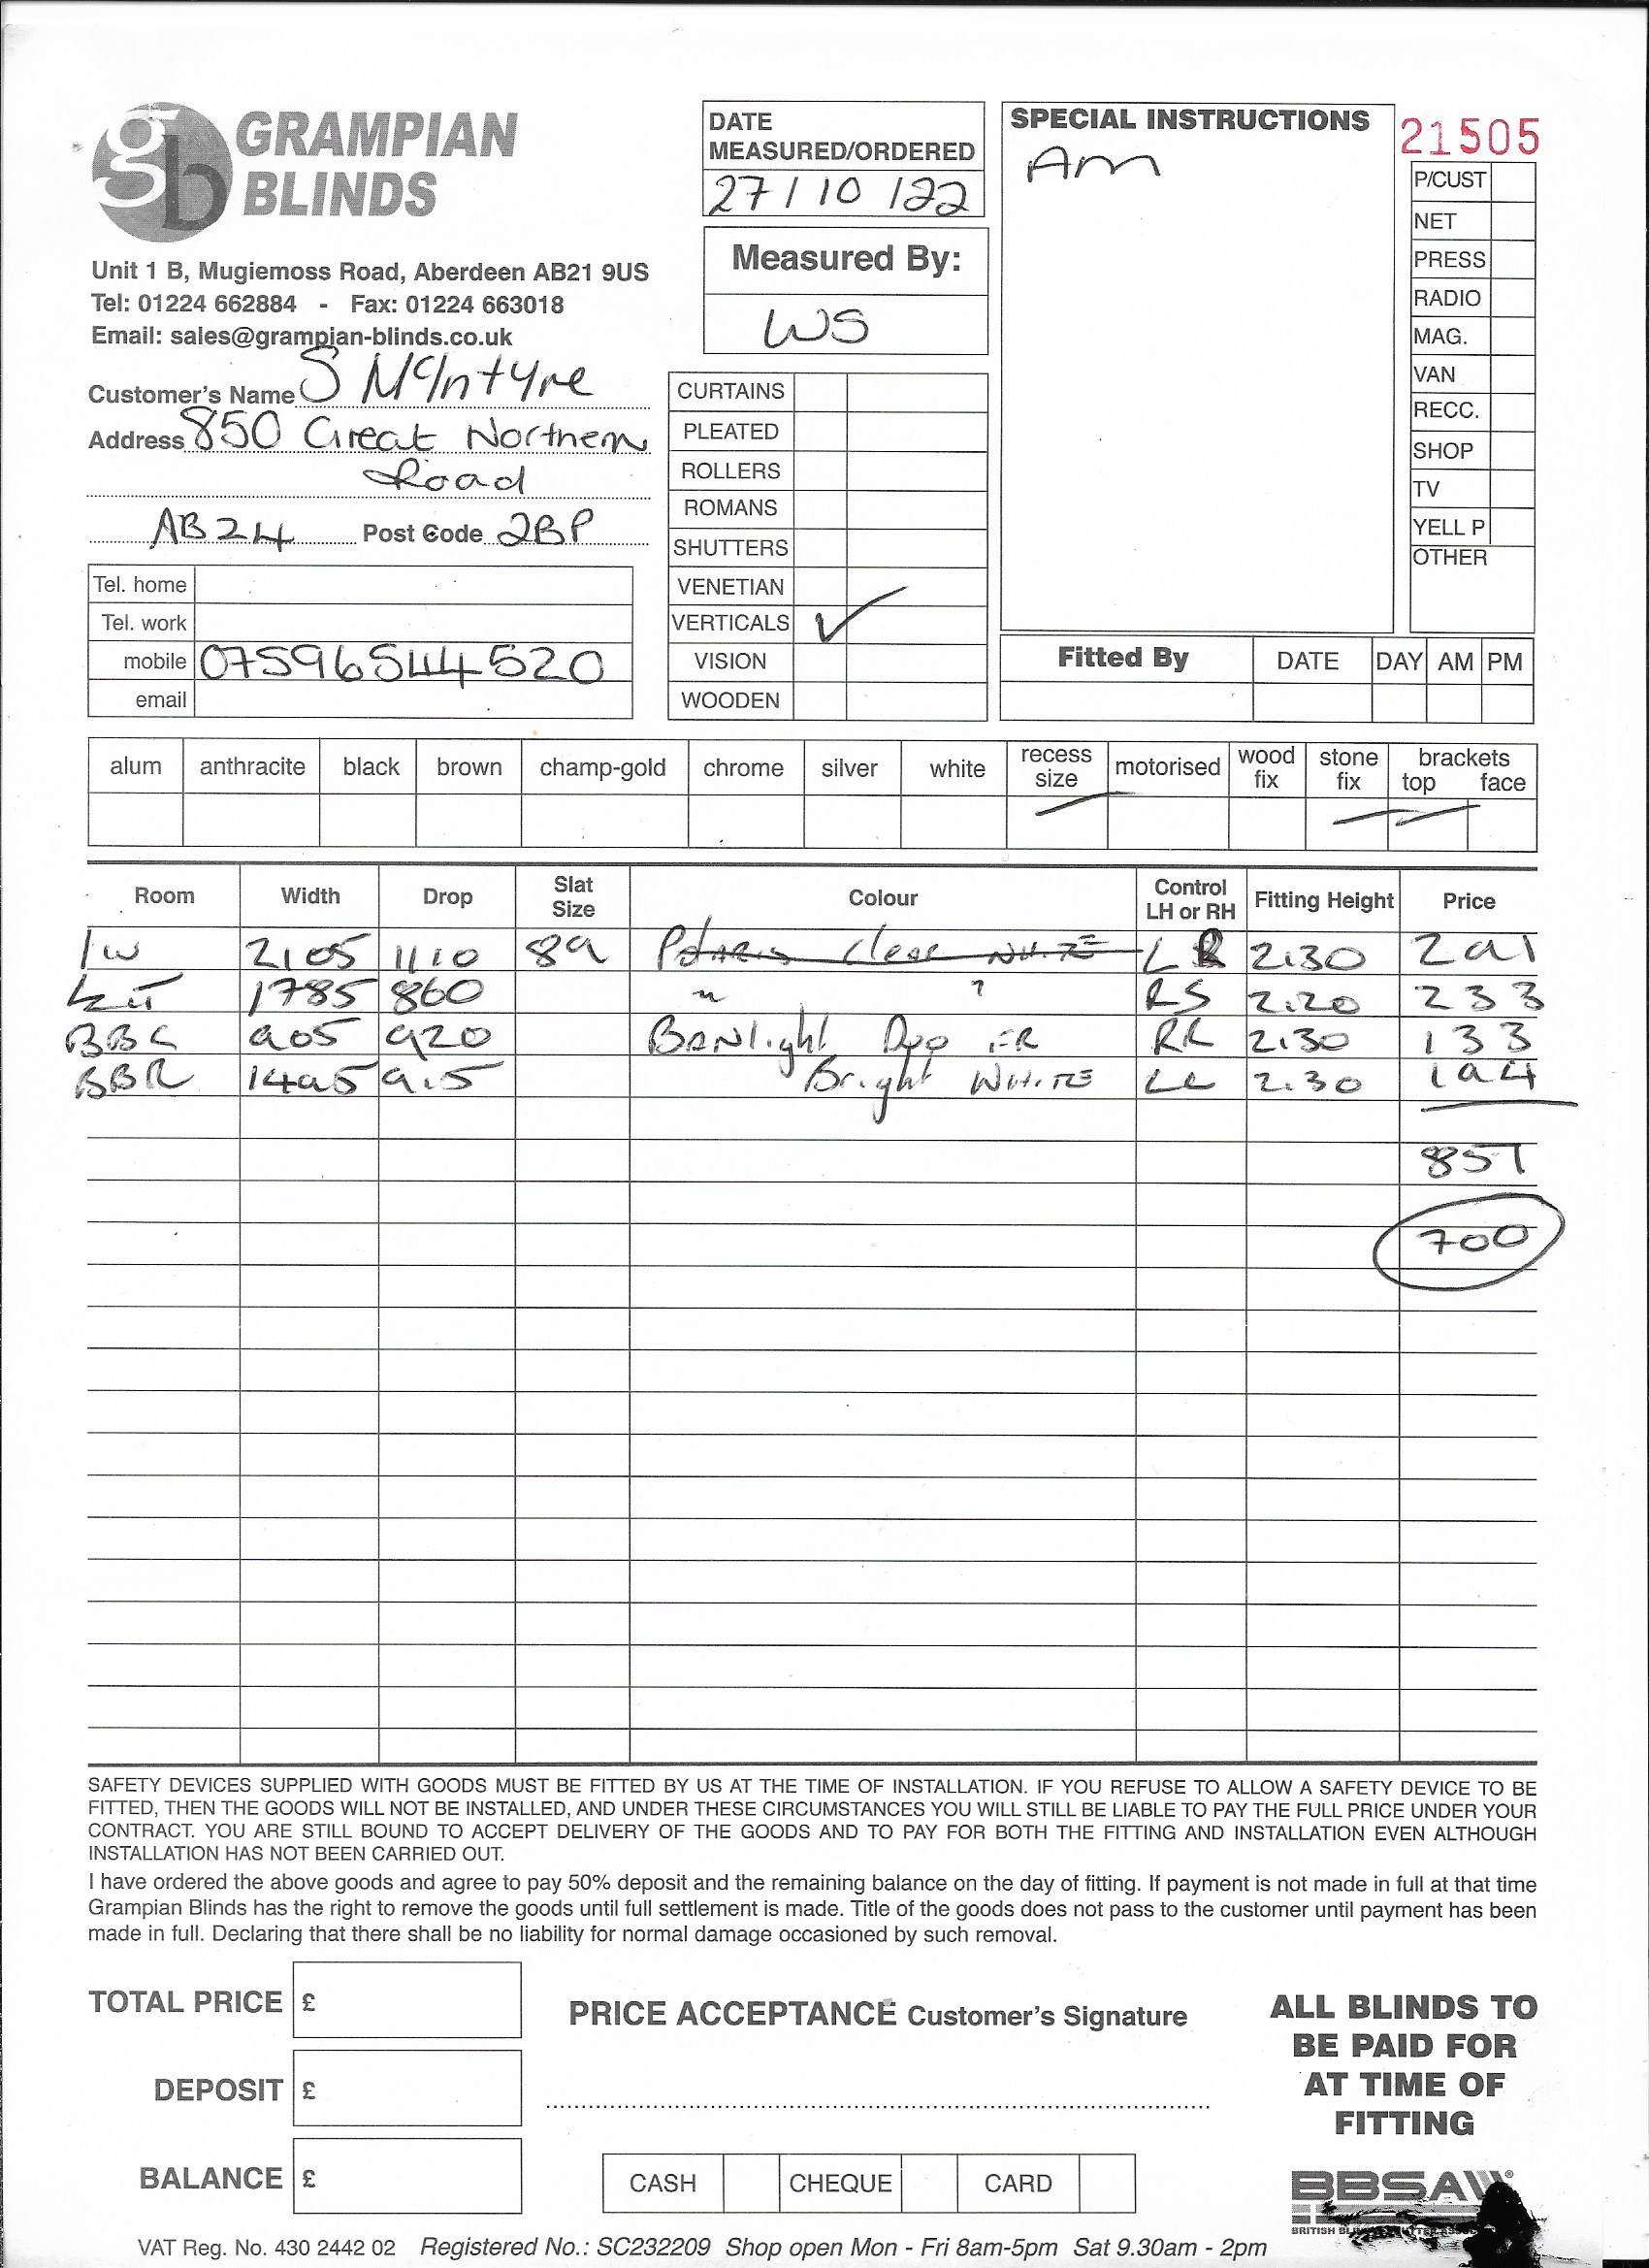 gb GRAMPIAN BLINDS
Unit 1 B, Mugiemoss Road, Aberdeen AB21 9US
Tel: 01224 662884 - Fax: 01224 663018
Email: sales@grampian-blinds.co.uk
Customer's Name S McIntyre
Address 850 Great Northern
Road
AB24 Post Code 2BP
Tel. home
Tel. work
mobile 07596544520
email
DATE
MEASURED/ORDERED
27/10/22
Measured By:
WS
CURTAINS
PLEATED
ROLLERS
ROMANS
SHUTTERS
VENETIAN
VERTICALS ✓
VISION
WOODEN
SPECIAL INSTRUCTIONS
Am
21505
P/CUST
NET
PRESS
RADIO
MAG.
VAN
RECC.
SHOP
TV
YELL P
OTHER
Fitted By DATE DAY AM PM
alum anthracite black brown champ-gold chrome silver white recess size motorised wood fix stone fix brackets top face
Room Width Drop Slat Size Colour Control LH or RH Fitting Height Price
2105 1110 89 Polaris Clear WHITE L R 2.30 291
Kit 1785 860 " " RS 2.20 233
BBL 905 920 BANlight Duo FR RR 2.30 133
BBR 1495 915 Bright WHITE LL 2.30 194
851
700
SAFETY DEVICES SUPPLIED WITH GOODS MUST BE FITTED BY US AT THE TIME OF INSTALLATION. IF YOU REFUSE TO ALLOW A SAFETY DEVICE TO BE
FITTED, THEN THE GOODS WILL NOT BE INSTALLED, AND UNDER THESE CIRCUMSTANCES YOU WILL STILL BE LIABLE TO PAY THE FULL PRICE UNDER YOUR
CONTRACT. YOU ARE STILL BOUND TO ACCEPT DELIVERY OF THE GOODS AND TO PAY FOR BOTH THE FITTING AND INSTALLATION EVEN ALTHOUGH
INSTALLATION HAS NOT BEEN CARRIED OUT.
I have ordered the above goods and agree to pay 50% deposit and the remaining balance on the day of fitting. If payment is not made in full at that time
Grampian Blinds has the right to remove the goods until full settlement is made. Title of the goods does not pass to the customer until payment has been
made in full. Declaring that there shall be no liability for normal damage occasioned by such removal.
TOTAL PRICE £
DEPOSIT £
BALANCE £
PRICE ACCEPTANCE Customer's Signature
CASH CHEQUE CARD
ALL BLINDS TO
BE PAID FOR
AT TIME OF
FITTING
BBSA
VAT Reg. No. 430 2442 02 Registered No.: SC232209 Shop open Mon - Fri 8am-5pm Sat 9.30am - 2pm